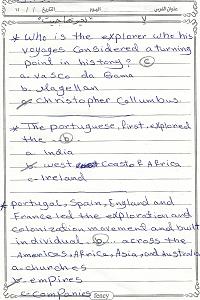 عنوان الدرس اليوم التاريخ / / ١١
* Who is the explorer who his
voyages considered a turning
point in history? c
a. vasco da Gama
b. Magellan
c. Christopher Collumbus
* The portuguese, first, explored
the b
a. India
b. west coast of Africa
c. Ireland
* portugal, Spain, England and
France led the exploration and
colonization movement and built
individual b across the
Americas, Africa, Asia, and Australia
a. churches
b. empires
c. companies